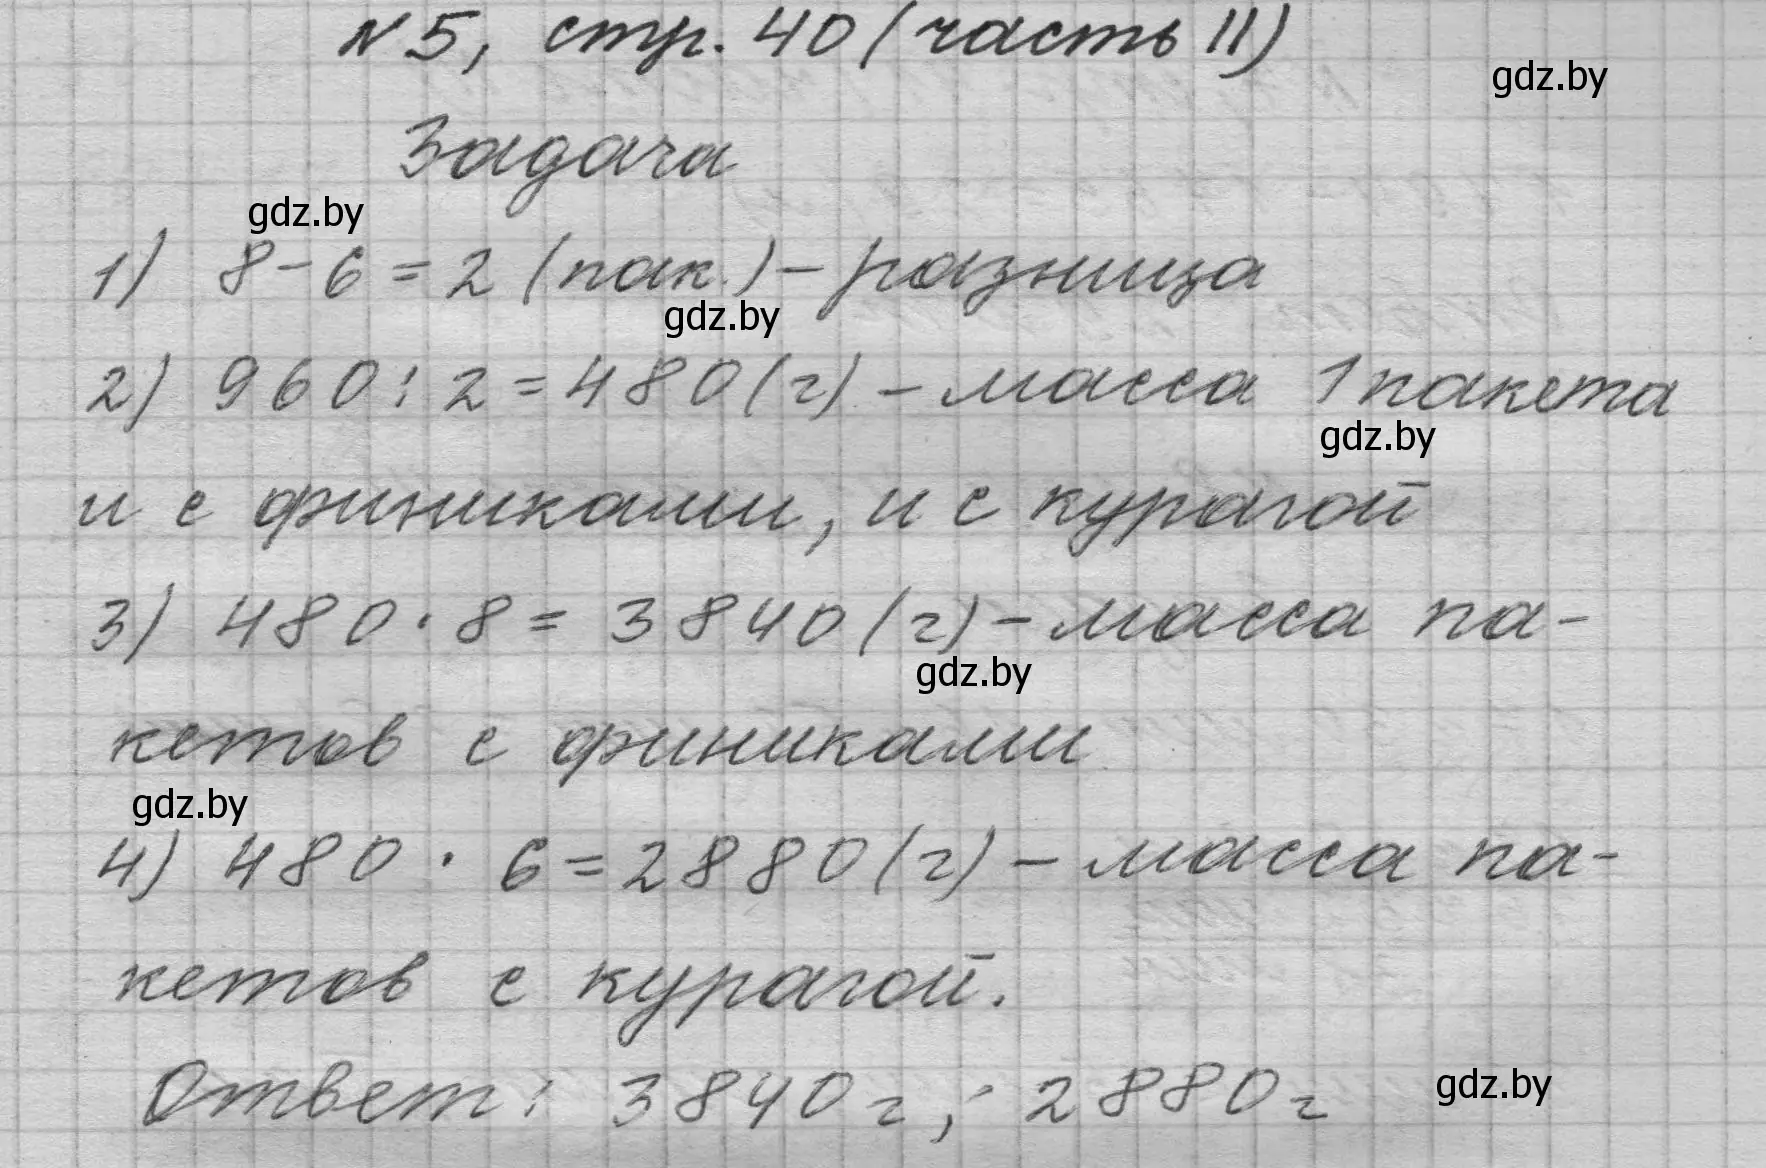 №5, стр. 40 (часть II)
gdz.by
Задача
gdz.by
1) 8-6=2 (пак.) - разница
gdz.by
2) 960:2=480(г) - масса 1 пакета
gdz.by
и с финиками, и с курагой
3) 480·8=3840(г) - масса па-
gdz.by
кетов с финиками
gdz.by
4) 480·6=2880(г) - масса па-
кетов с курагой.
Ответ: 3840г; 2880г
gdz.by